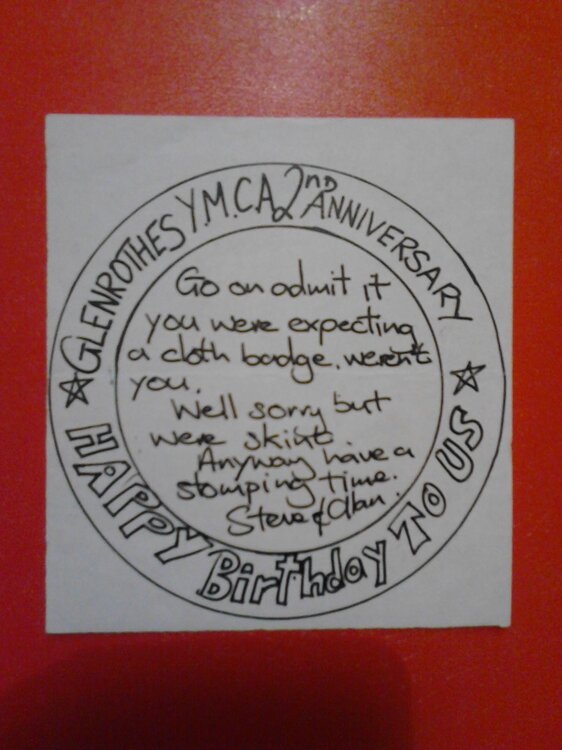 GLENROTHES Y.M.C.A 2ND ANNIVERSARY
Go on admit it
you were expecting
a cloth badge. weren't
you.
Well sorry but
were skint
Anyway have a
stomping time.
Steve & Alan.
HAPPY Birthday TO US